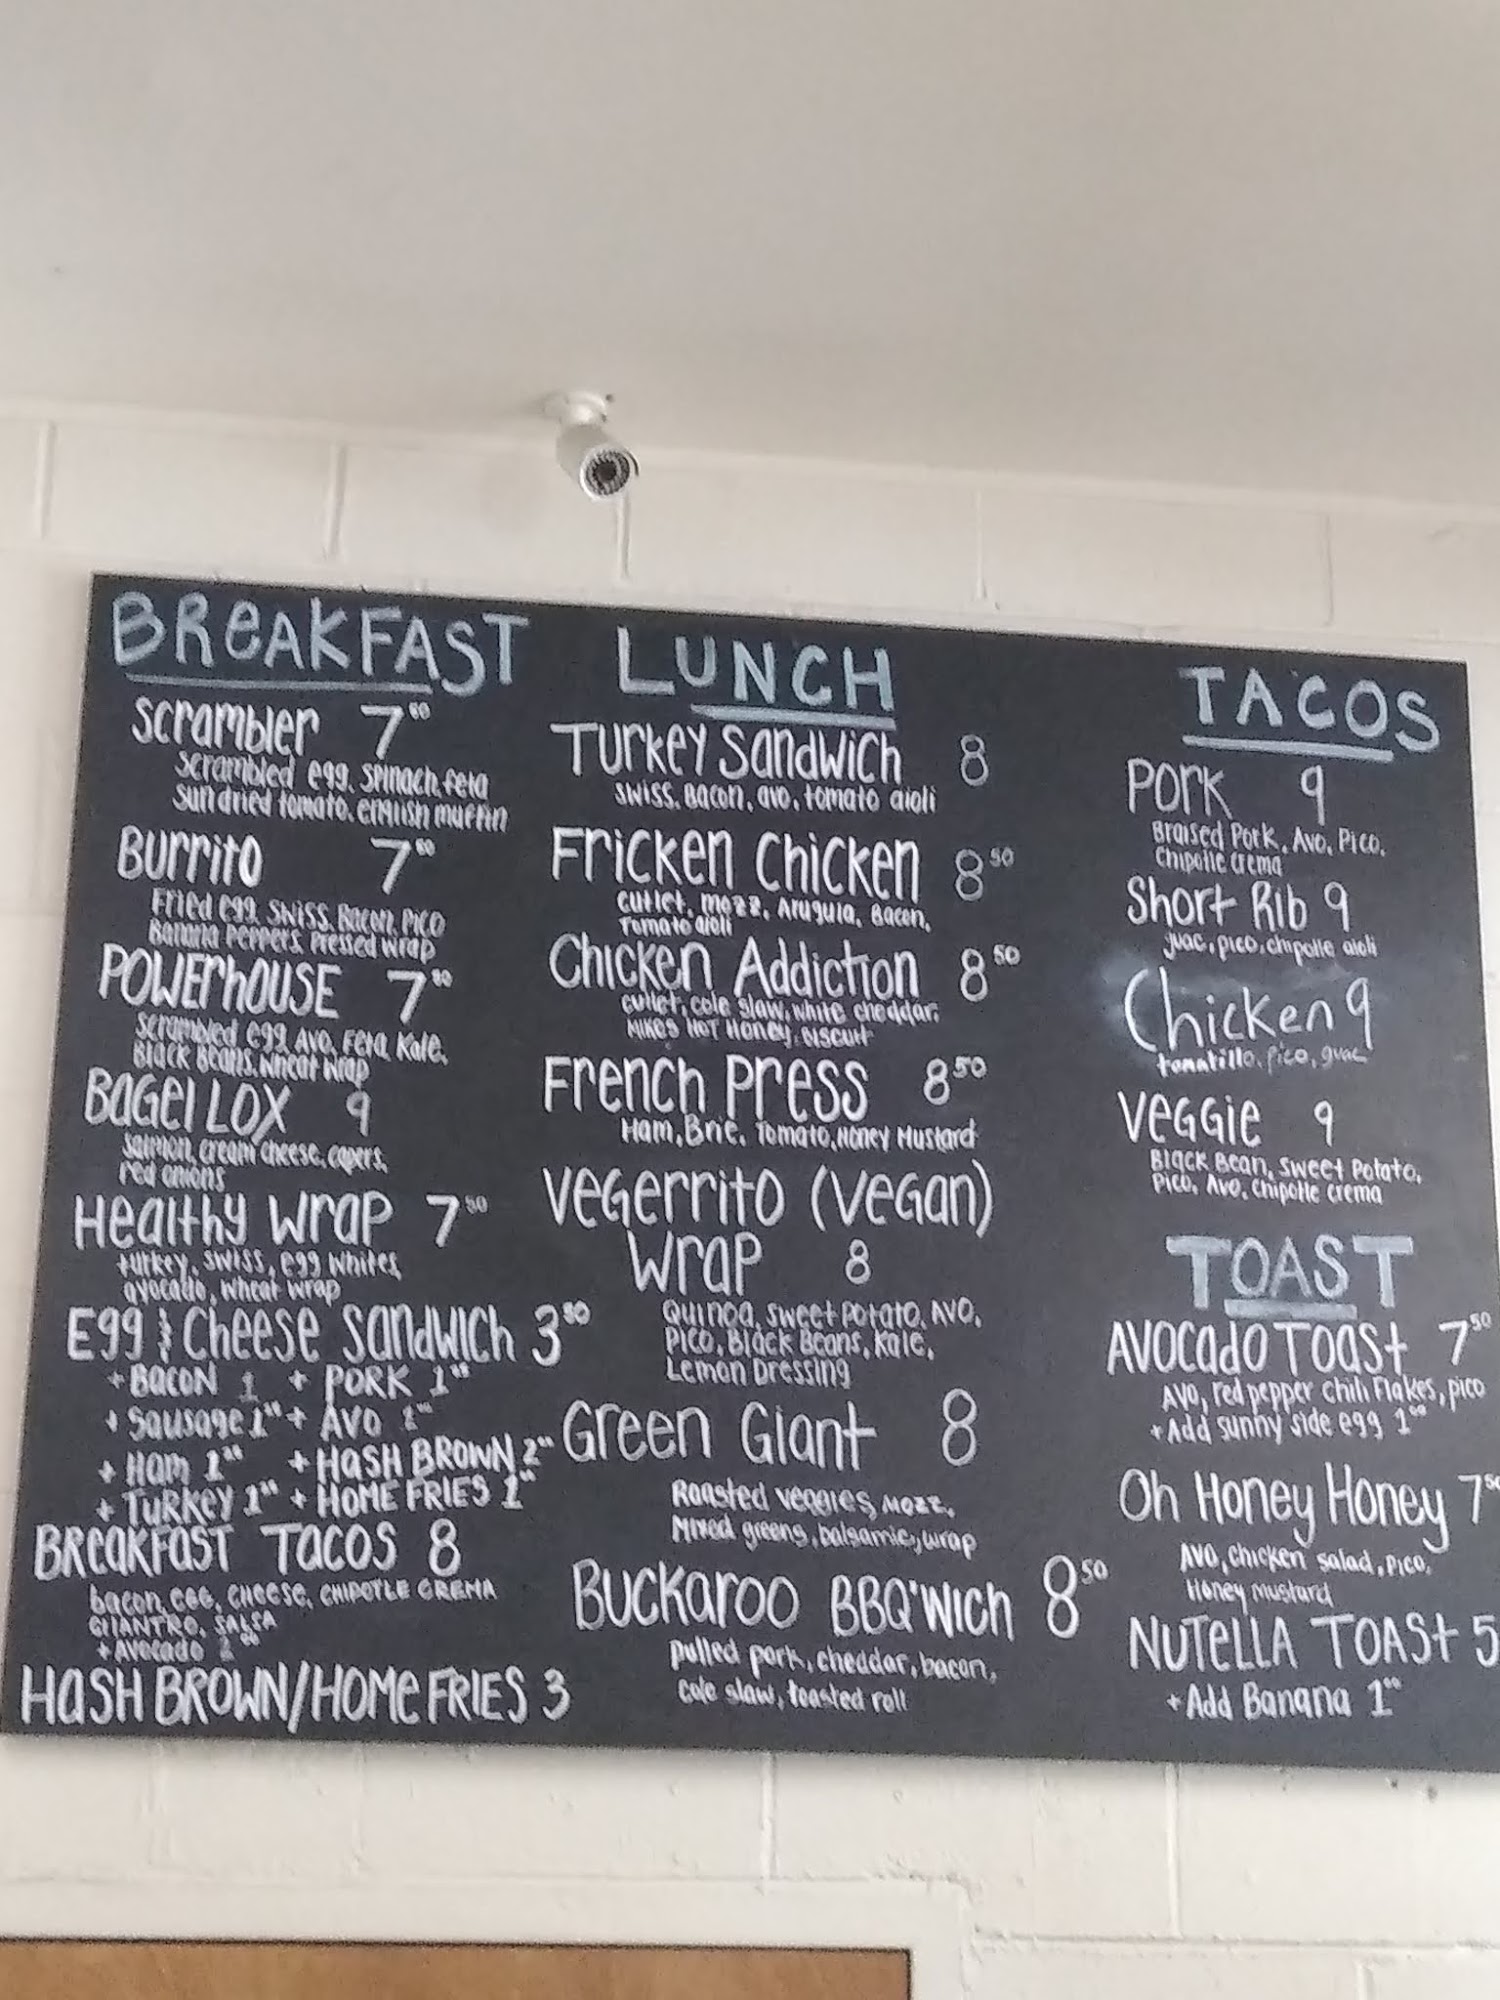 BREAKFAST
Scrambler 7 50
Scrambled egg, spinach, feta
Sundried tomato, english muffin
Burrito 7 50
Fried egg, Swiss, Bacon, Pico
Banana Peppers, Pressed wrap
POWERHOUSE 7 50
Scrambled egg, Avo, Feta, Kale,
Black Beans, Wheat Wrap
BAGEL LOX 9
Salmon, cream cheese, capers,
red onions
Healthy Wrap 7 50
turkey, swiss, egg whites,
avocado, wheat wrap
Egg & Cheese Sandwich 3 50
+ Bacon 1 + PORK 1 00
+ Sausage 1 00 + AVO
+ Ham 1 00 + HASH BROWN 2 00
+ Turkey 1 00 + HOME FRIES 1 00
BREAKFAST TACOS 8
bacon, egg, cheese, CHIPOTLE CREMA
CILANTRO, SALSA
+ Avocado
HASH BROWN/HOME FRIES 3
LUNCH
Turkey Sandwich 8
Swiss, Bacon, avo, tomato aioli
Fricken Chicken 8 50
cutlet, mozz, Arugula, Bacon,
Tomato aioli
Chicken Addiction 8 50
cutlet, cole slaw, white cheddar,
MIKES HOT Honey, BISCUIT
French Press 8 50
Ham, Brie, Tomato, Honey Mustard
Vegerrito (Vegan)
Wrap 8
Quinoa, Sweet Potato, AVO,
Pico, Black Beans, Kale,
Lemon Dressing
Green Giant 8
Roasted veggies, Mozz,
Mixed greens, balsamic, wrap
Buckaroo BBQ'Wich 8 50
pulled pork, cheddar, bacon,
cole slaw, toasted roll
TACOS
Pork 9
Braised Pork, Avo, Pico,
Chipotle Crema
Short Rib 9
guac, pico, chipotle aioli
Chicken 9
tomatillo, pico, guac
Veggie 9
Black Bean, Sweet Potato,
Pico, Avo, Chipotle Crema
TOAST
Avocado Toast 7 50
Avo, red pepper chili flakes, pico
+ Add sunny side egg 1 00
Oh Honey Honey 7 50
Avo, chicken salad, pico,
Honey mustard
NUTELLA TOAST 5
+ Add Banana 1 00